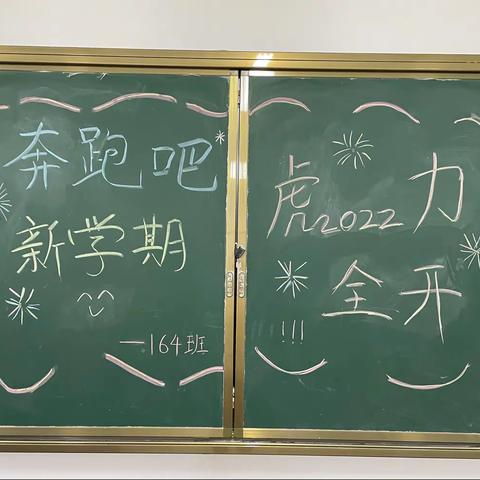 奔跑吧
新学期
一164班
虎2022力
全开
!!!